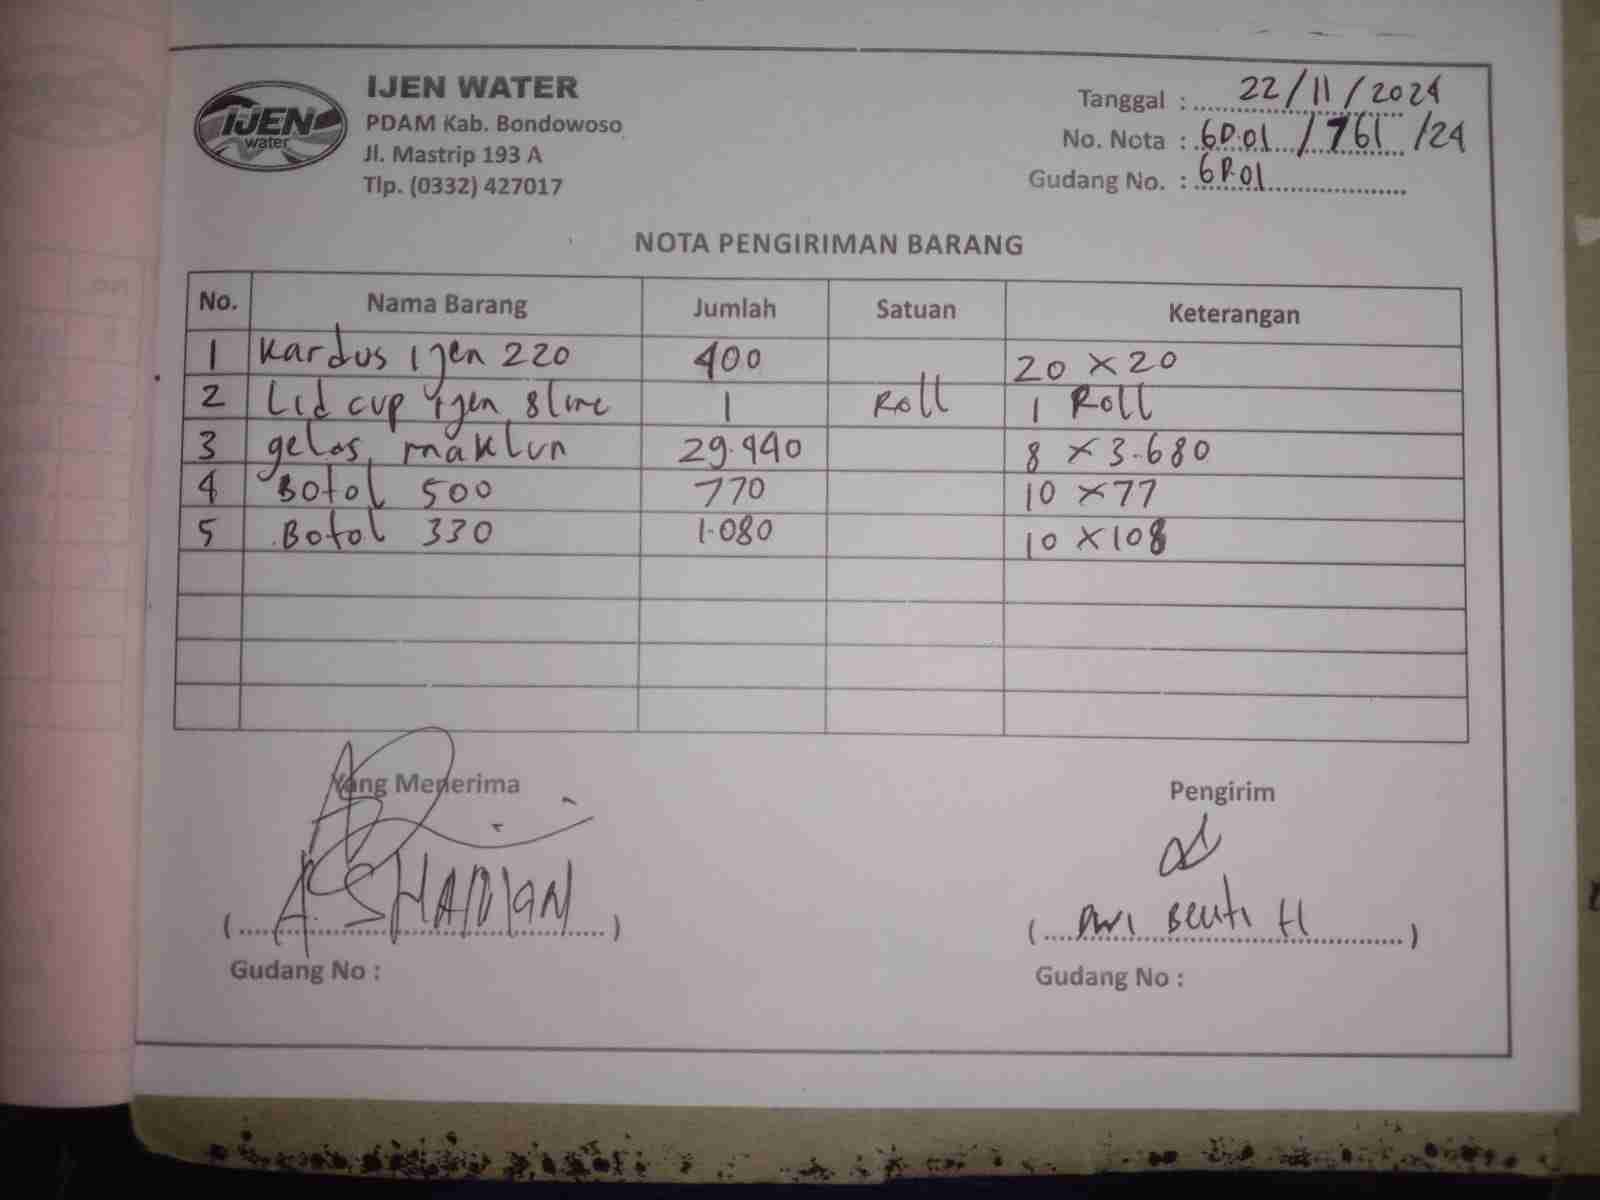 IJEN WATER
PDAM Kab. Bondowoso
Jl. Mastrip 193 A
Tlp. (0332) 427017
IJEN
water
Tanggal : 22/11/2024
No. Nota : GD.01 / 761 /24
Gudang No. : GD.01
NOTA PENGIRIMAN BARANG
No. Nama Barang Jumlah Satuan Keterangan
1 Kardus ijen 220 400 20 x 20
2 Lid cup ijen 1 Roll 1 Roll
3 gelas maklun 29.440 8 x 3.680
4 Botol 500 770 10 x 77
5 Botol 330 1.080 10 x 108
Yang Menerima Pengirim
(A. ) ( H )
Gudang No : Gudang No :